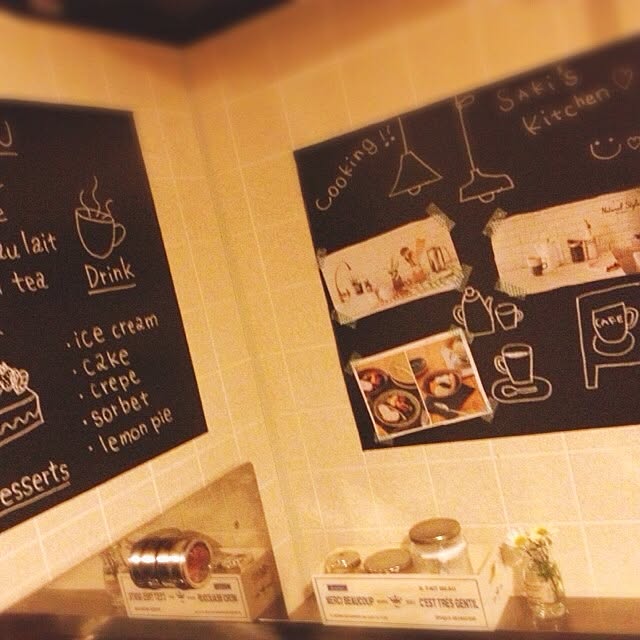 au lait
tea
Drink
·ice cream
·cake
·crepe
·sorbet
·lemon pie
esserts
Cooking!!
SAKi's
Kitchen
CAFE
Natural Style
MERCI BEAUCOUP
C'EST TRÈS GENTIL